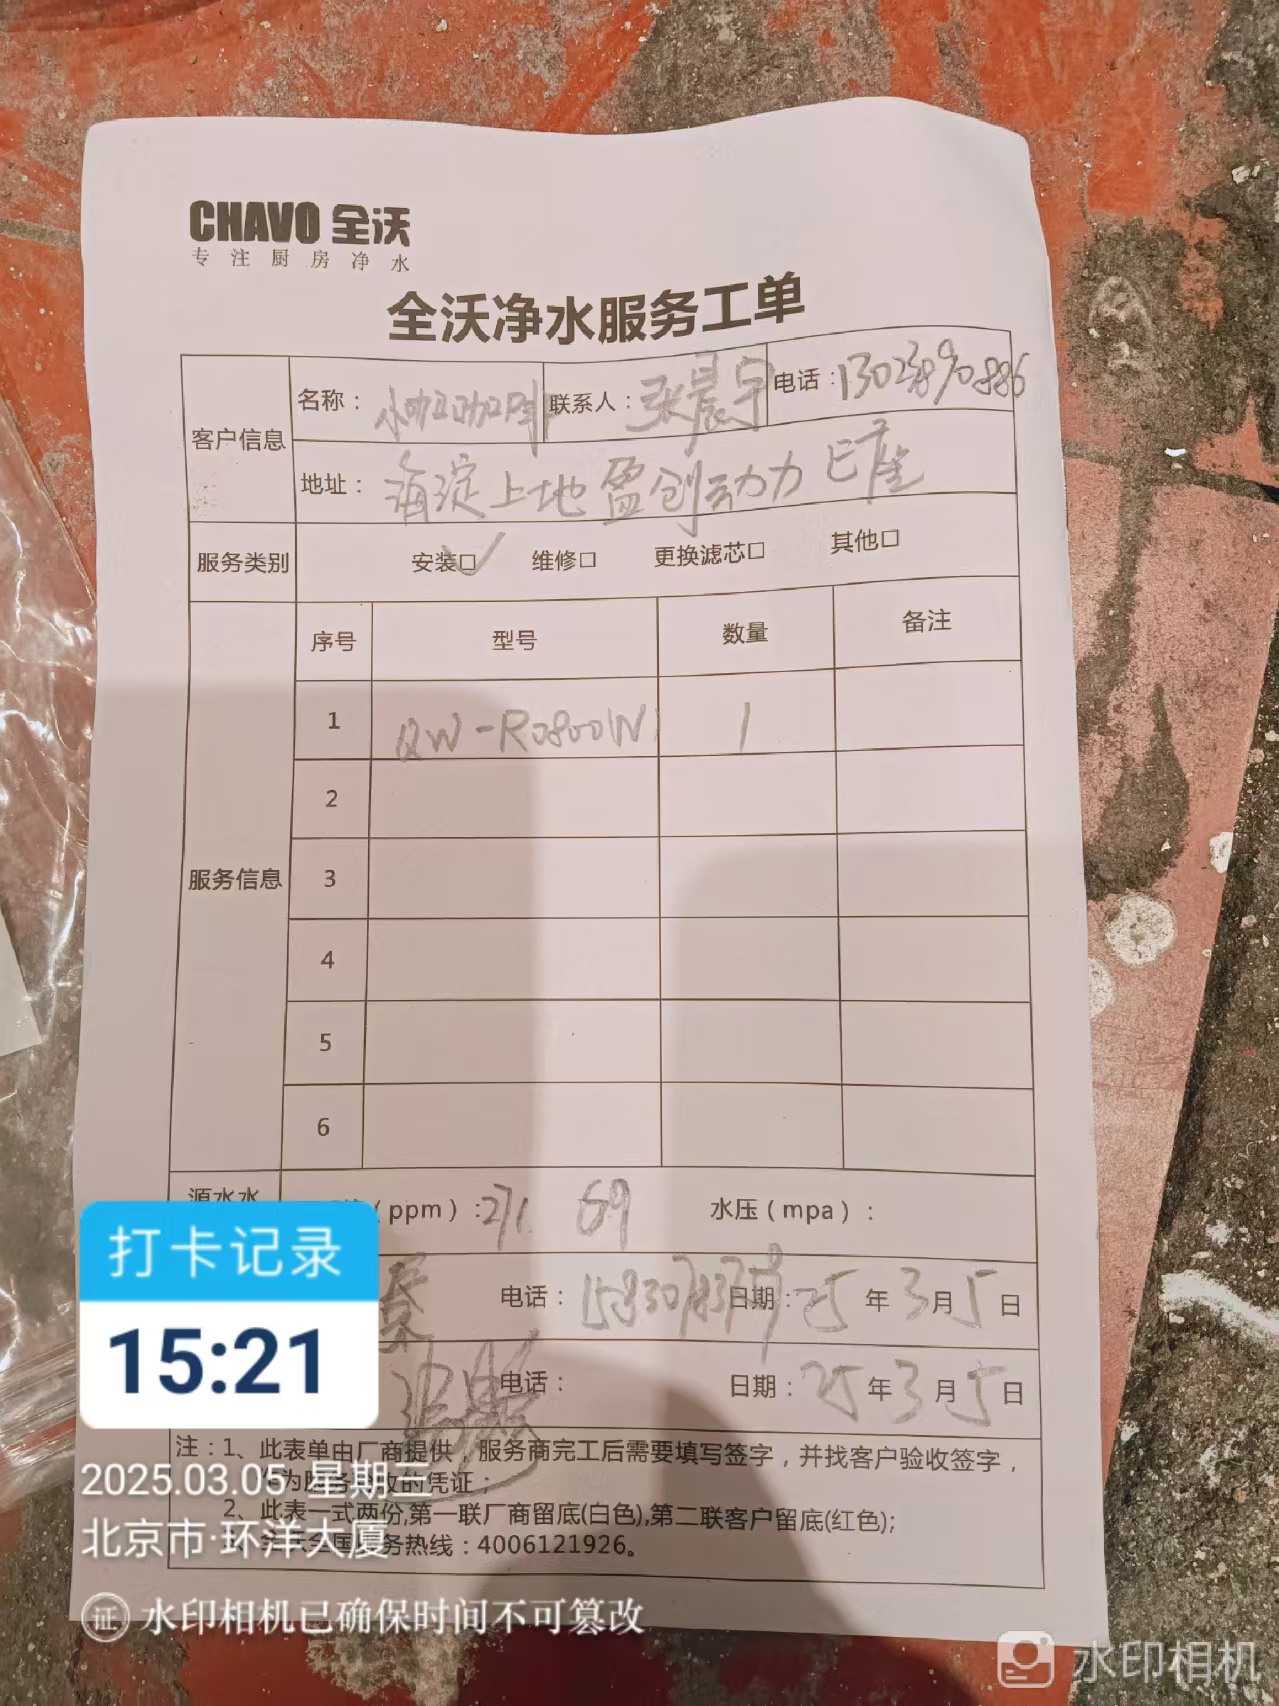 CHAVO 全沃
专注厨房净水
全沃净水服务工单
客户信息
名称：小咖咖啡 联系人：张晨宇 电话：
地址：海淀上地盈创动力E座
服务类别 安装☑ 维修□ 更换滤芯□ 其他□
服务信息
序号 型号 数量 备注
1 QW-RO800W 1
2
3
4
5
6
源水水 (ppm)：271 69 水压(mpa)：
电话： 日期：25年3月5日
电话： 日期：25年3月5日
注：1、此表单由厂商提供，服务商完工后需要填写签字，并找客户验收签字，
作为服务验收的凭证；
2、此表一式两份,第一联厂商留底(白色),第二联客户留底(红色);
务热线：4006121926。
打卡记录
15:21
2025.03.05 星期三
北京市·环洋大厦
证 水印相机已确保时间不可篡改
水印相机